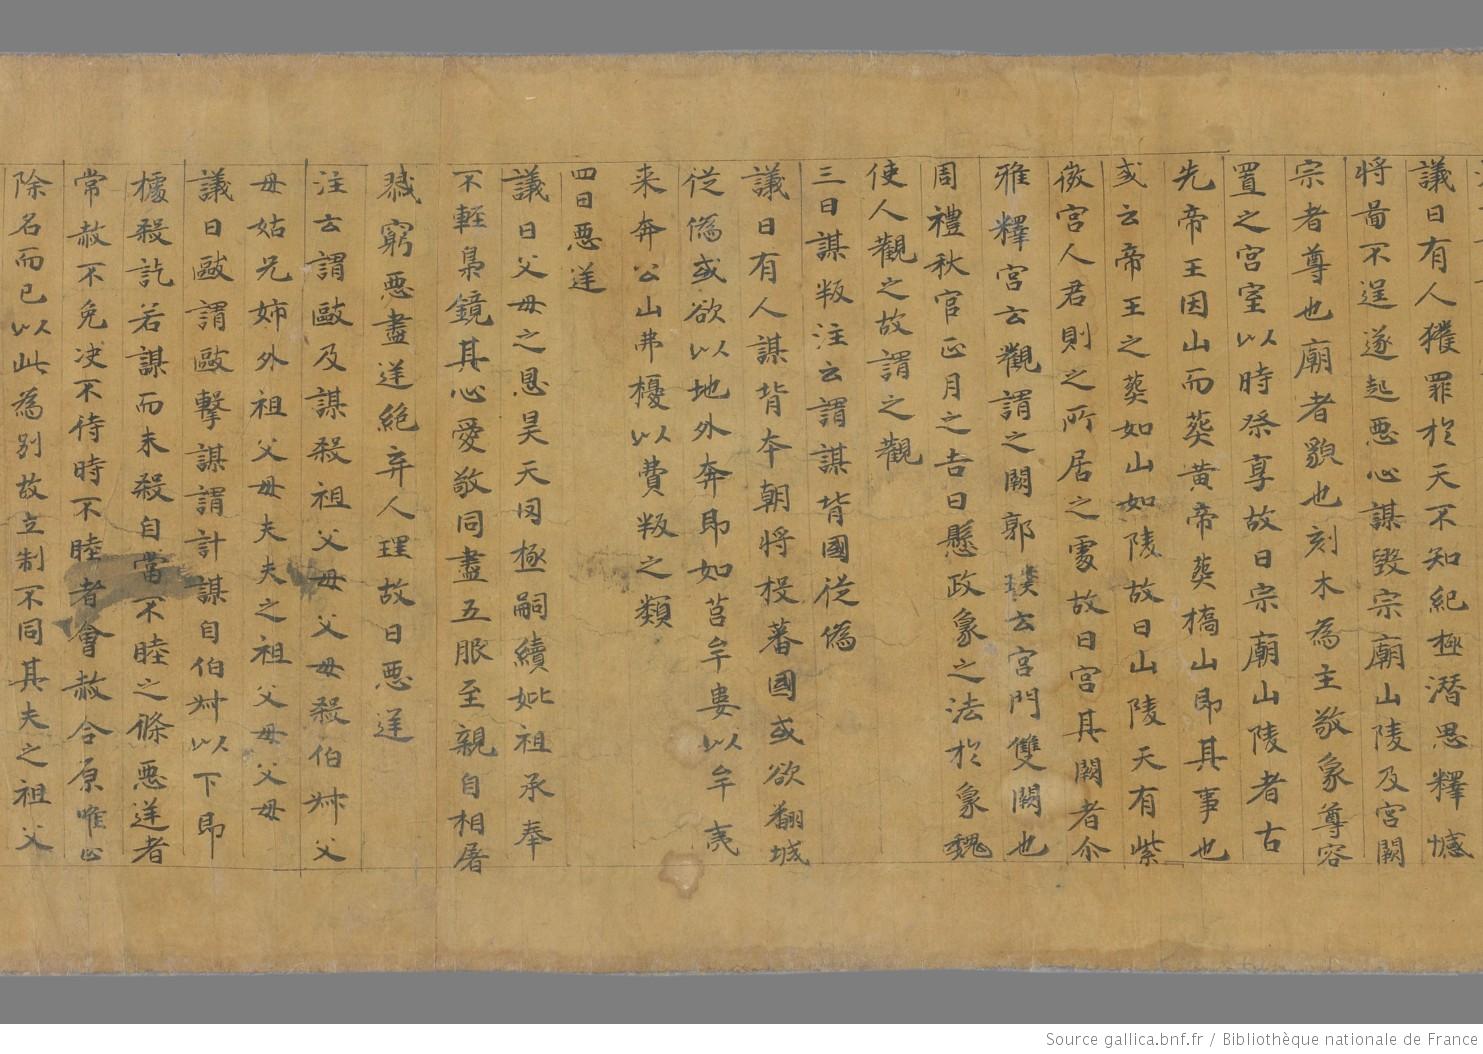 議曰有人獲罪於天不知紀極潛思釋憾
將啚不逞遂起惡心謀毀宗廟山陵及宮闕
宗者尊也廟者貌也刻木為主敬象尊容
置之宮室以時祭享故曰宗廟山陵者古
先帝王因山而葬黃帝葬橋山即其事也
或云帝王之葬如山如陵故曰山陵天有紫
微宮人君則之所居之處故曰宮其闕者尒
雅釋宮云觀謂之闕郭璞云宮門雙闕也
周禮秋官正月之吉日懸政象之法於象魏
使人觀之故謂之觀
三曰謀叛注云謂謀背國從偽
議曰有人謀背本朝將投蕃國或欲翻城
從偽或欲以地外奔即如莒牟婁以牟夷
来奔公山弗擾以費叛之類
四曰惡逆
議曰父母之恩昊天罔極嗣續妣祖承奉
不輕梟鏡其心愛敬同盡五服至親自相屠
戮窮惡盡逆絕弃人理故曰惡逆
注云謂毆及謀殺祖父母父母殺伯叔父
母姑兄姉外祖父母夫夫之祖父母父母
議曰毆謂毆擊謀謂計謀自伯叔以下即
據殺訖若謀而未殺自當不睦之條惡逆者
常赦不免決不待時不睦者會赦合原唯止
除名而已以此為別故立制不同其夫之祖父
Source gallica.bnf.fr / Bibliothèque nationale de France